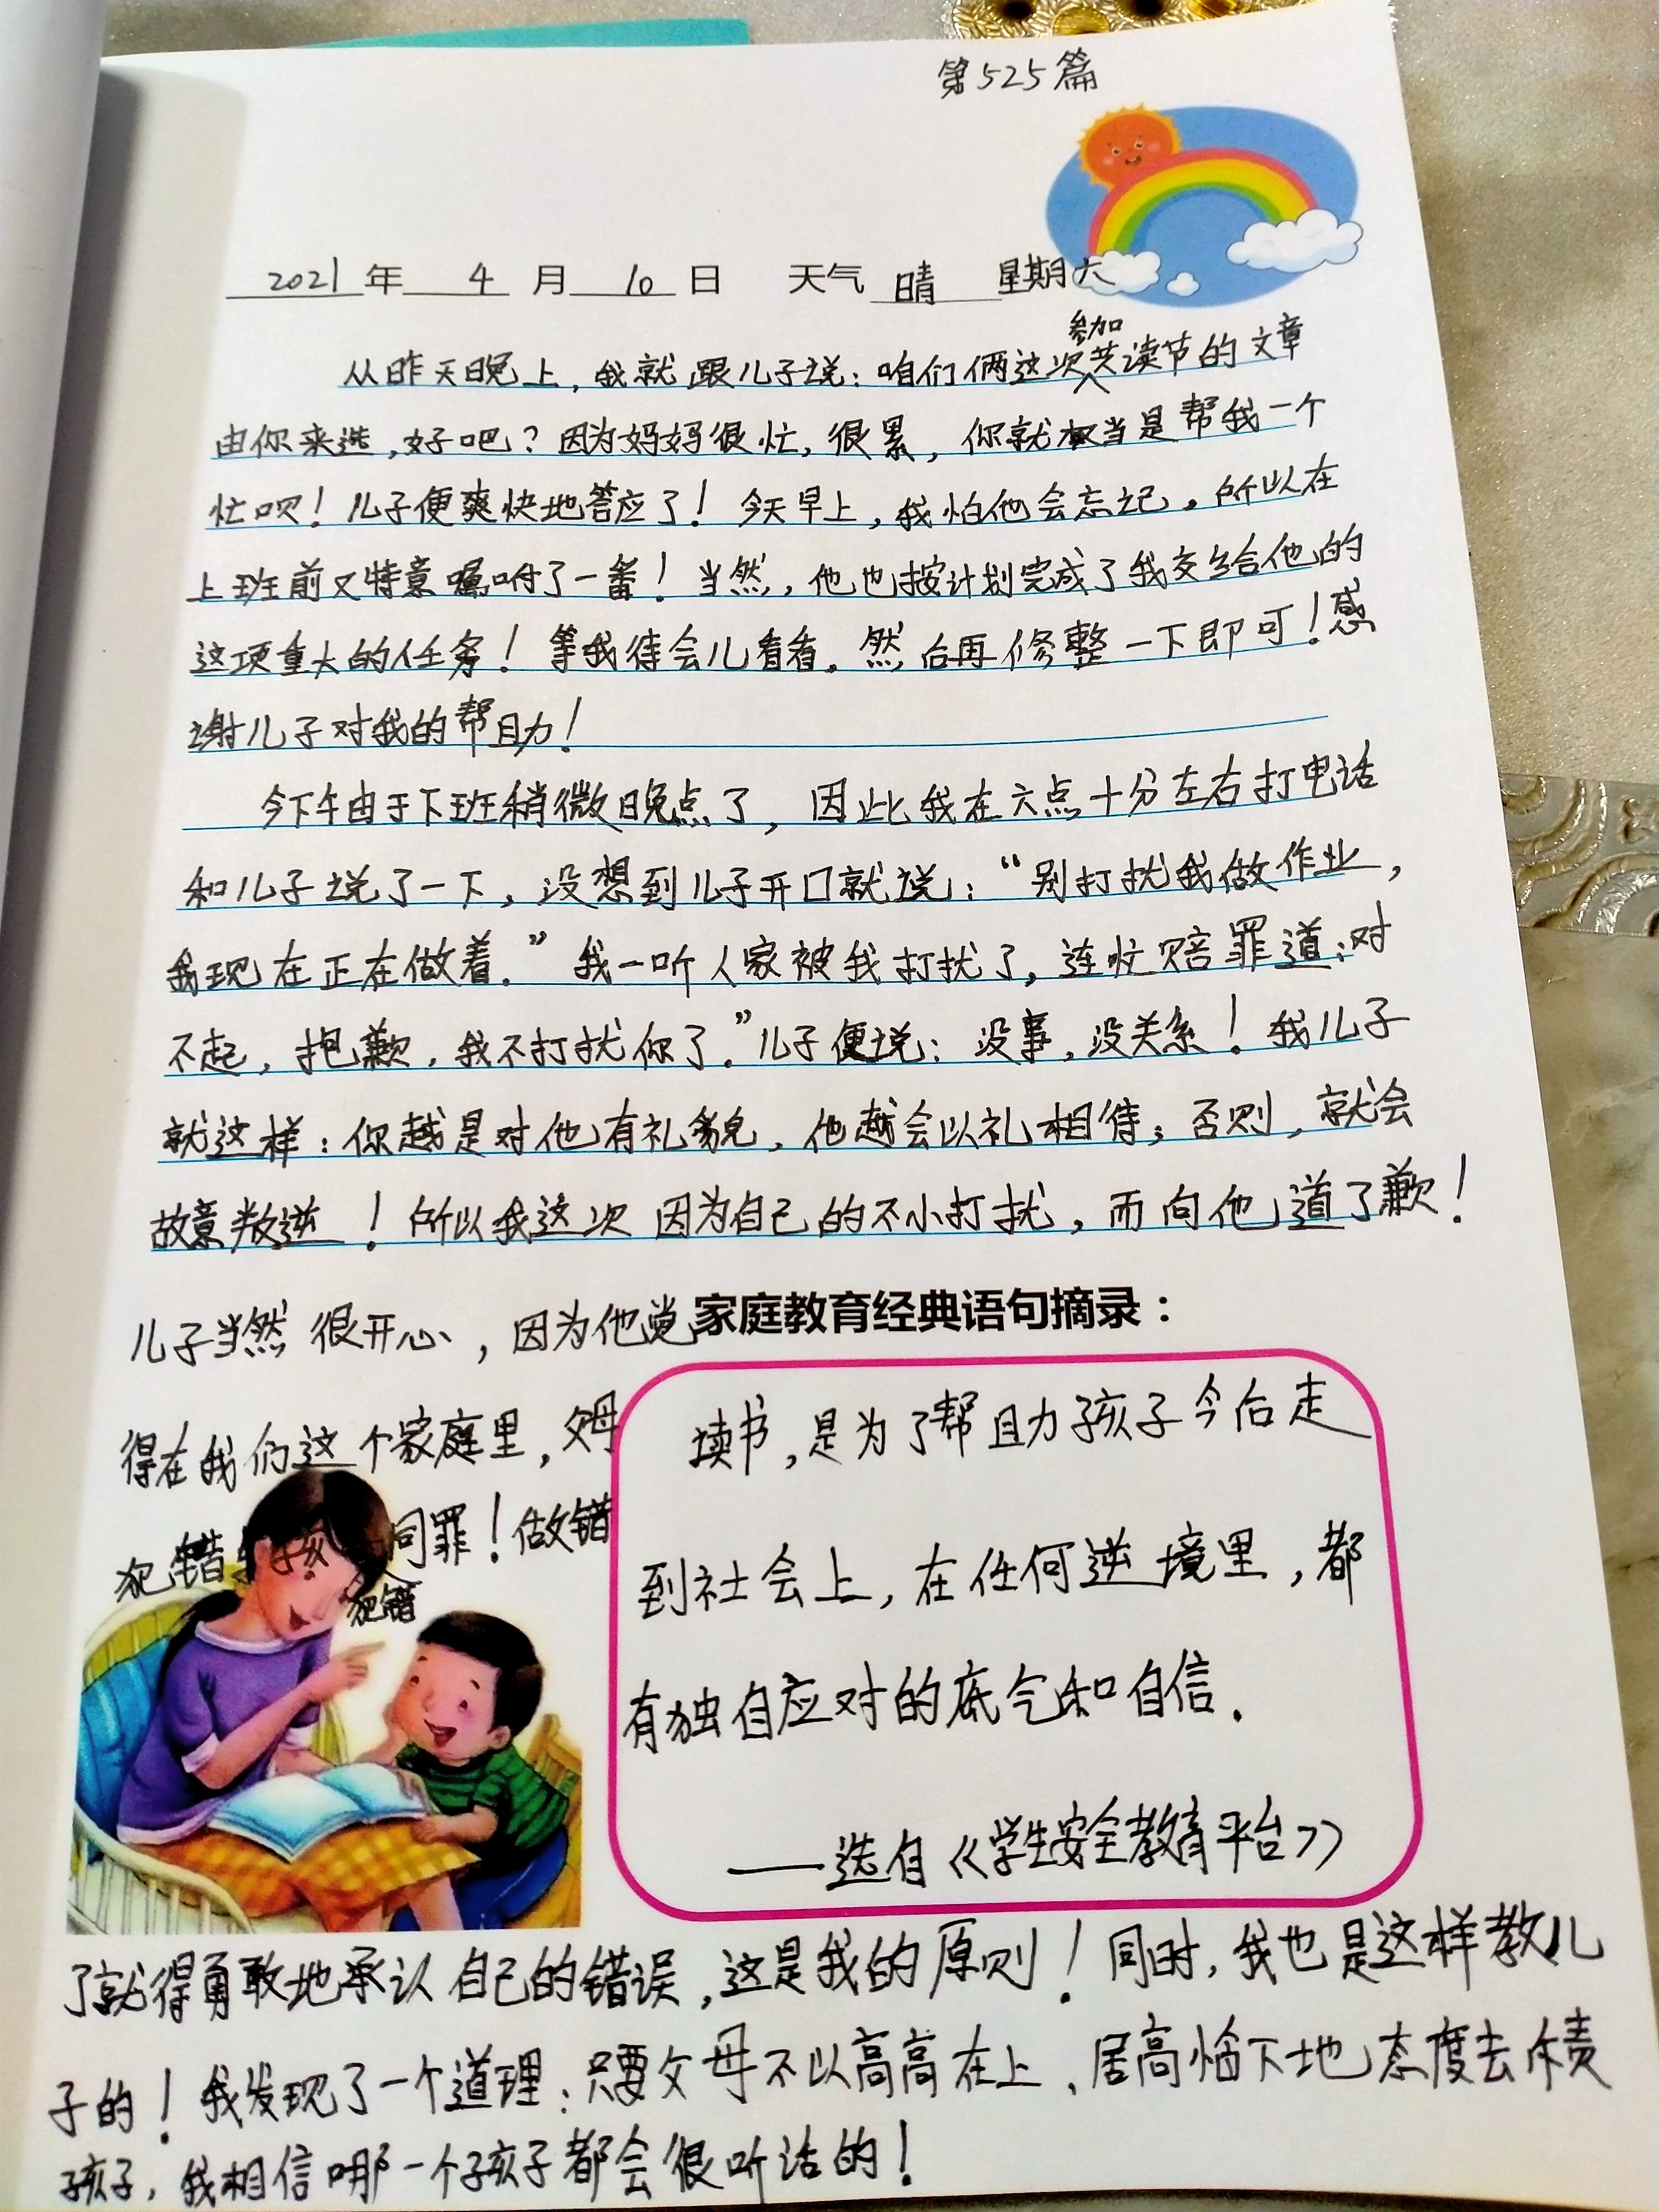 第525篇
2021年 4 月 10 日 天气 晴 星期六
参加
从昨天晚上,我就跟儿子说:咱们俩这次共读节的文章
由你来选,好吧?因为妈妈很忙,很累,你就权当是帮我一个
忙呗!儿子便爽快地答应了!今天早上,我怕他会忘记,所以在
上班前又特意嘱咐了一番!当然,他也按计划完成了我交给他的
这项重大的任务!等我待会儿看看,然后再修整一下即可!感
谢儿子对我的帮助!
今下午由于下班稍微晚点了,因此我在六点十分左右打电话
和儿子说了一下,没想到儿子开口就说:“别打扰我做作业,
我现在正在做着.”我一听人家被我打扰了,连忙赔罪道:对
不起,抱歉,我不打扰你了.”儿子便说:没事,没关系!我儿子
就这样:你越是对他有礼貌,他越会以礼相待;否则,就会
故意叛逆!所以我这次因为自己的不小打扰,而向他道了歉!
儿子当然很开心,因为他觉
得在我们这个家庭里,父母
犯错与孩 同罪!做错
犯错
家庭教育经典语句摘录:
读书,是为了帮助孩子今后走
到社会上,在任何逆境里,都
有独自应对的底气和自信.
——选自《学生安全教育平台》
了就得勇敢地承认自己的错误,这是我的原则!同时,我也是这样教儿
子的!我发现了一个道理:只要父母不以高高在上、居高临下地态度去责
孩子,我相信哪一个孩子都会很听话的!